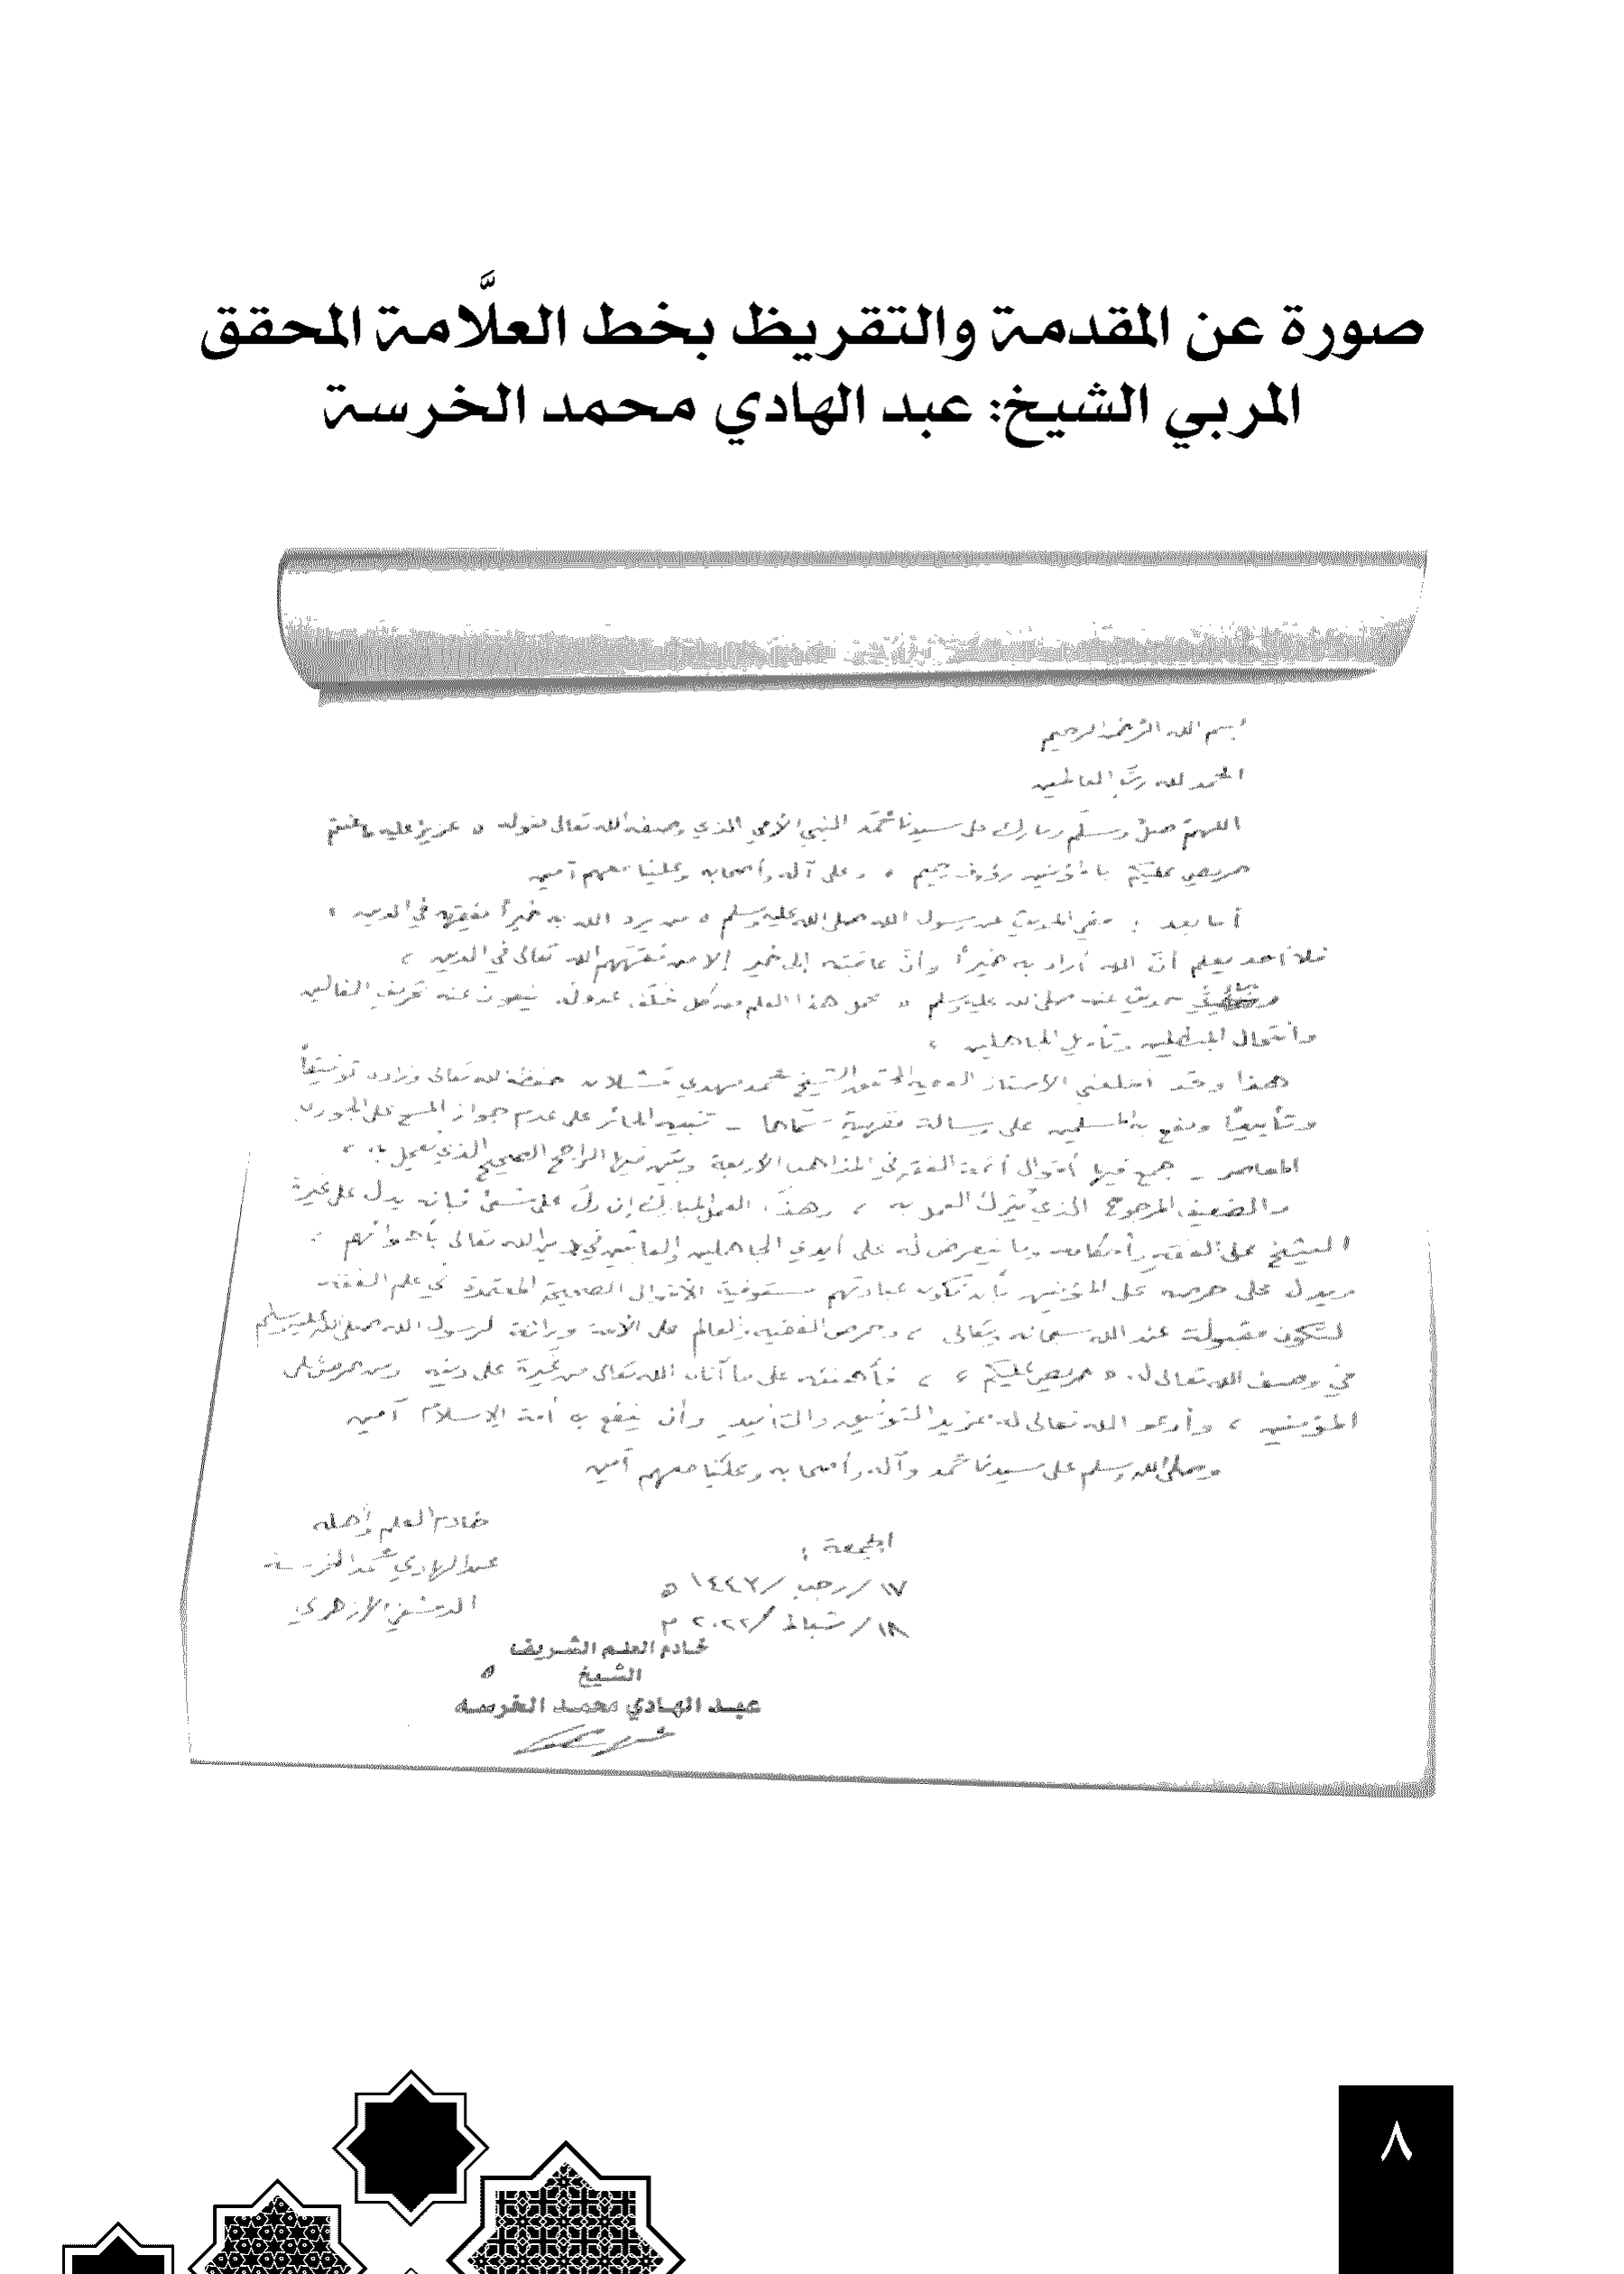 صورة عن المقدمة والتقريظ بخط العلَّامة المحقق
المربي الشيخ: عبد الهادي محمد الخرسة
بسم الله الرحمن الرحيم
الحمد لله ربِّ العالمين
اللهم صلِّ وسلم وبارك على سيدنا محمَّد النبي الأمي الذي وصفه الله تعالى بقوله « عزيز عليه ما عنتم
حريص عليكم بالمؤمنين رؤوف رحيم » وعلى آله وأصحابه وعلينا معهم آمين
أما بعد : ففي الحديث عن رسول الله صلى الله عليه وسلم « من يرد الله به خيراً يفقهه في الدين »
فلا أحد يعلم أنَّ الله أراد به خيراً وأنَّ عاقبته إلى خير إلا من فقَّههم الله تعالى في الدين ،
حديث عنه صلى الله عليه وسلم « يحمل هذا العلم من كل خلف عدوله ينفون عنه تحريف الغالين
وانتحال المبطلين وتأويل الجاهلين »
هذا وقد أطلعني الأستاذ المحقق الشيخ محمد مهدي قشلان حفظه الله تعالى وزاده توفيقاً
وتأييداً ونفع به المسلمين على رسالة فقهية سمَّاها - تنبيه الحائر على عدم جواز المسح على الجورب
المعاصر - جمع فيها أقوال أئمة الفقه في المذاهب الأربعة وبيَّن فيها الراجح الصحيح الذي يعمل به ،
والضعيف المرجوح الذي يُترك العمل به ، وهذا العمل المبارك إن دلَّ على شيء فإنه يدل على غيرة
الشيخ على الفقه وأحكامه وما يتعرض له على أيدي الجاهلين والعابثين في دين الله تعالى بأهوائهم .
ويدل على حرصه على المؤمنين بأن تكون عبادتهم مستوفية الأقوال الصحيحة المعتمدة في علم الفقه
لتكون مقبولة عند الله سبحانه وتعالى ، وحرص الفقيه العالم على الأمة وراثة لرسول الله صلى الله عليه وسلم
في وصف الله تعالى له « حريص عليكم » ، فأهنئه على ما آتاه الله تعالى من غيرة على دينه ومن حرص على
المؤمنين ، وأدعو الله تعالى له بمزيد التوفيق والتأييد وأن ينفع به أمة الإسلام آمين
وصلى الله وسلم على سيدنا محمد وآله وأصحابه وعلينا معهم آمين
خادم العلم وأهله
عبد الهادي محمد الخرسة
الدمشقي الأزهري
الجمعة :
١٧/رجب/١٤٤٣ هـ
١٨/شباط/٢٠٢٢ م
خادم العلم الشريف
الشيخ
عبد الهادي محمد الخرسه
٨